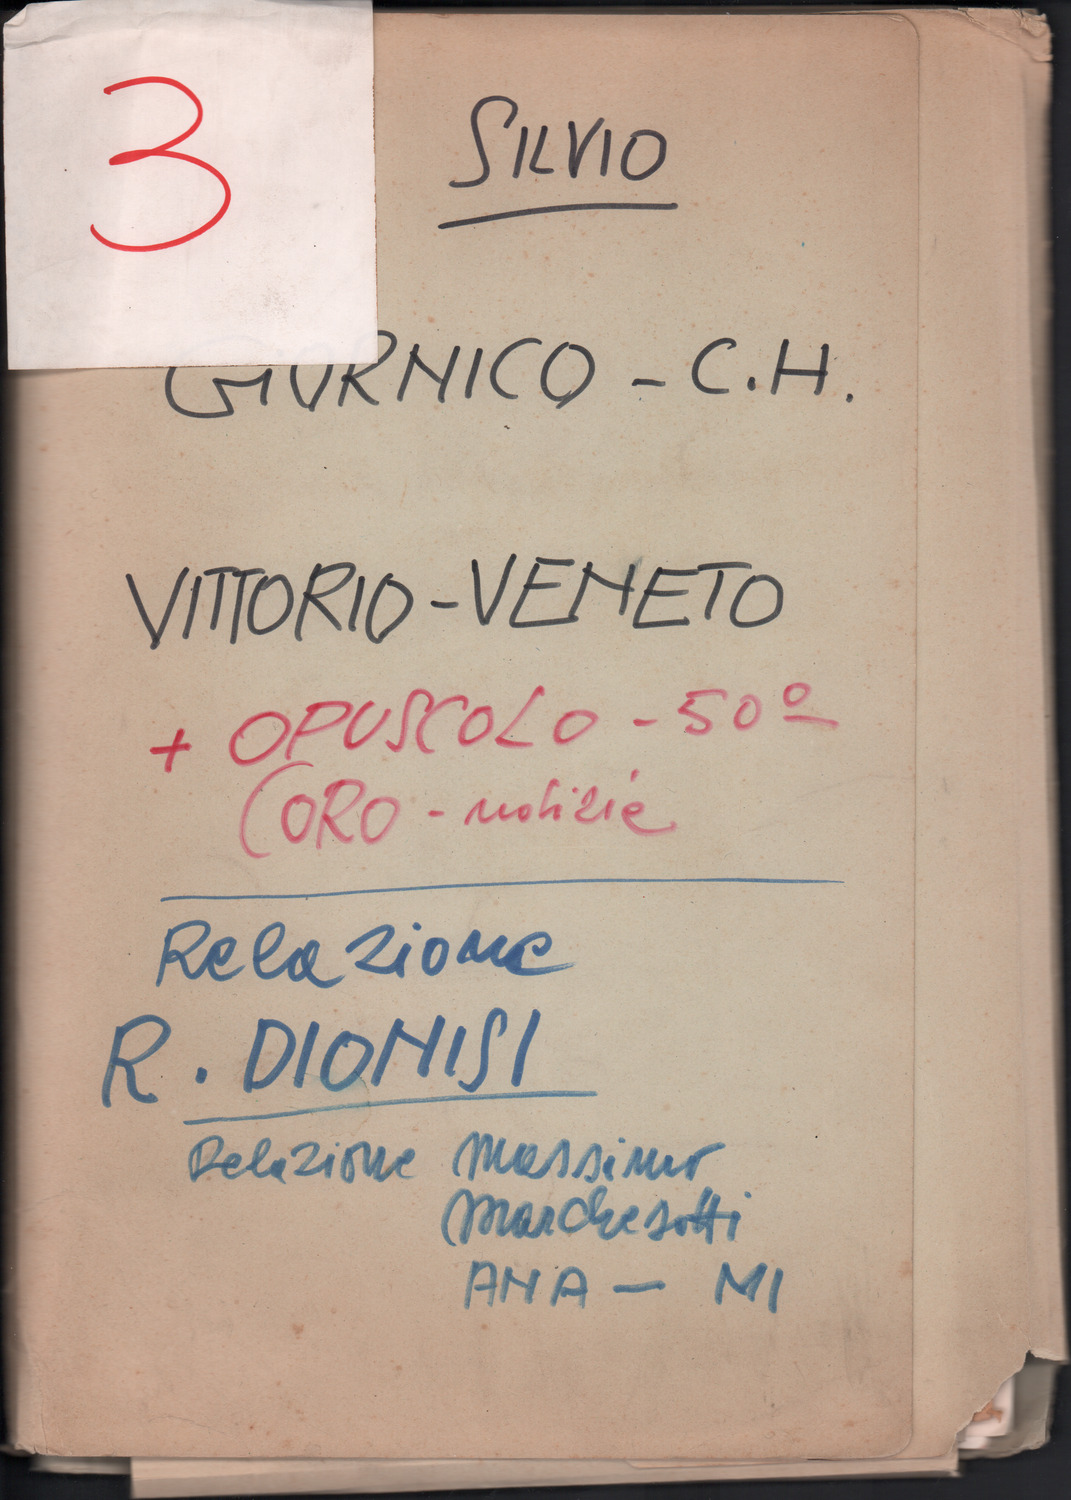 3
SILVIO
GIORNICO - C.H.
VITTORIO - VENETO
+ OPUSCOLO - 50º
CORO - notizie
Relazione
R. DIONISI
Relazione Massimo
Marchesotti
ANA - MI